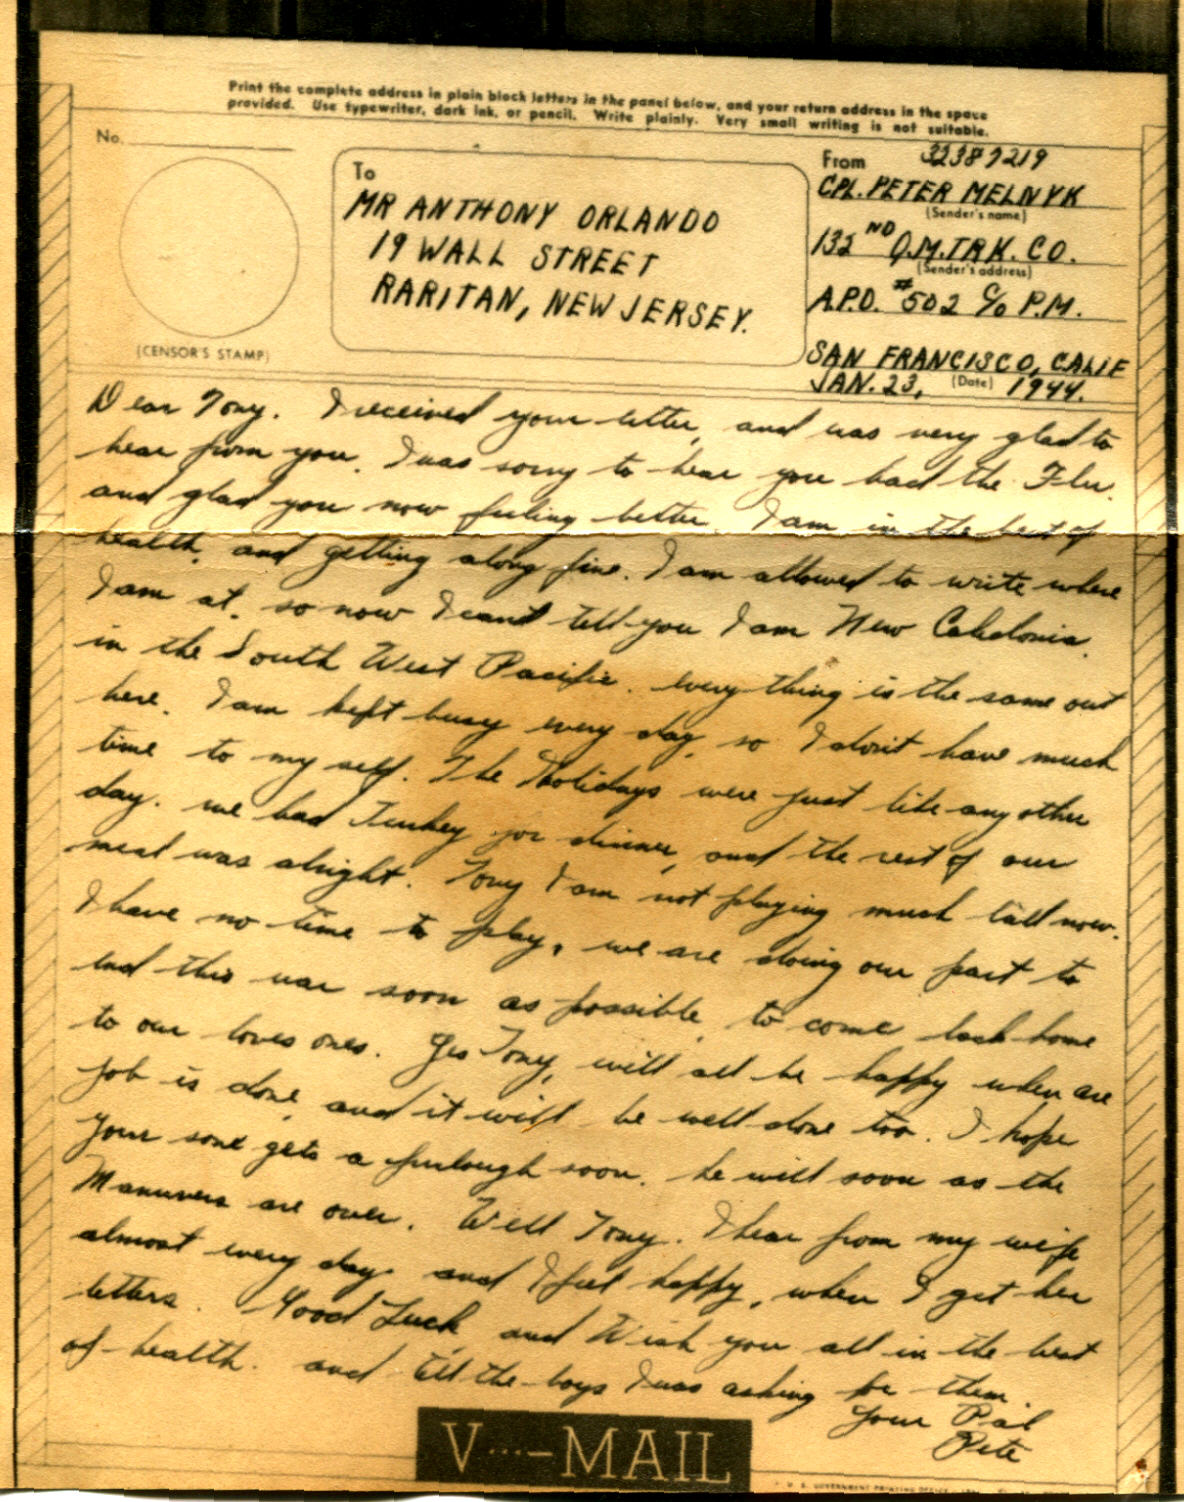 Print the complete address in plain block letters in the panel below, and your return address in the space
provided. Use typewriter, dark ink, or pencil. Write plainly. Very small writing is not suitable.
No.
(CENSOR'S STAMP)
To
MR ANTHONY ORLANDO
19 WALL STREET
RARITAN, NEW JERSEY.
From
32387219
CPL. PETER MELNYK
(Sender's name)
132ND Q.M.TRK. CO.
(Sender's address)
A.P.O. #502 C/O P.M.
SAN FRANCISCO, CALIF
JAN. 23, (Date) 1944.
Dear Tony. I received your letter, and was very glad to
hear from you. I was sorry to hear you had the Flu.
and glad you now feeling better. I am in the best of
health, and getting along fine. I am allowed to write where
I am at. so now I can tell you I am New Caledonia.
in the South West Pacific. every thing is the same out
here. I am kept busy every day, so I don't have much
time to my self. The Holidays were just like any other
day. we had Turkey for dinner, and the rest of our
meal was alright. Tony I am not playing much till now.
I have no time to play, we are doing our part to
end this war soon as possible, to come back home
to our loves ones. Yes Tony, will all be happy when are
job is done, and it will be well done too. I hope
your sone gets a furlough soon. he will soon as the
Manuvers are over. Well Tony. I hear from my wife
almost every day. and I feel happy, when I get her
letters. Good Luck, and Wish you all in the best
of health. and tell the boys I was asking for them.
Your Pal
Pete
V...-MAIL
U. S. GOVERNMENT PRINTING OFFICE